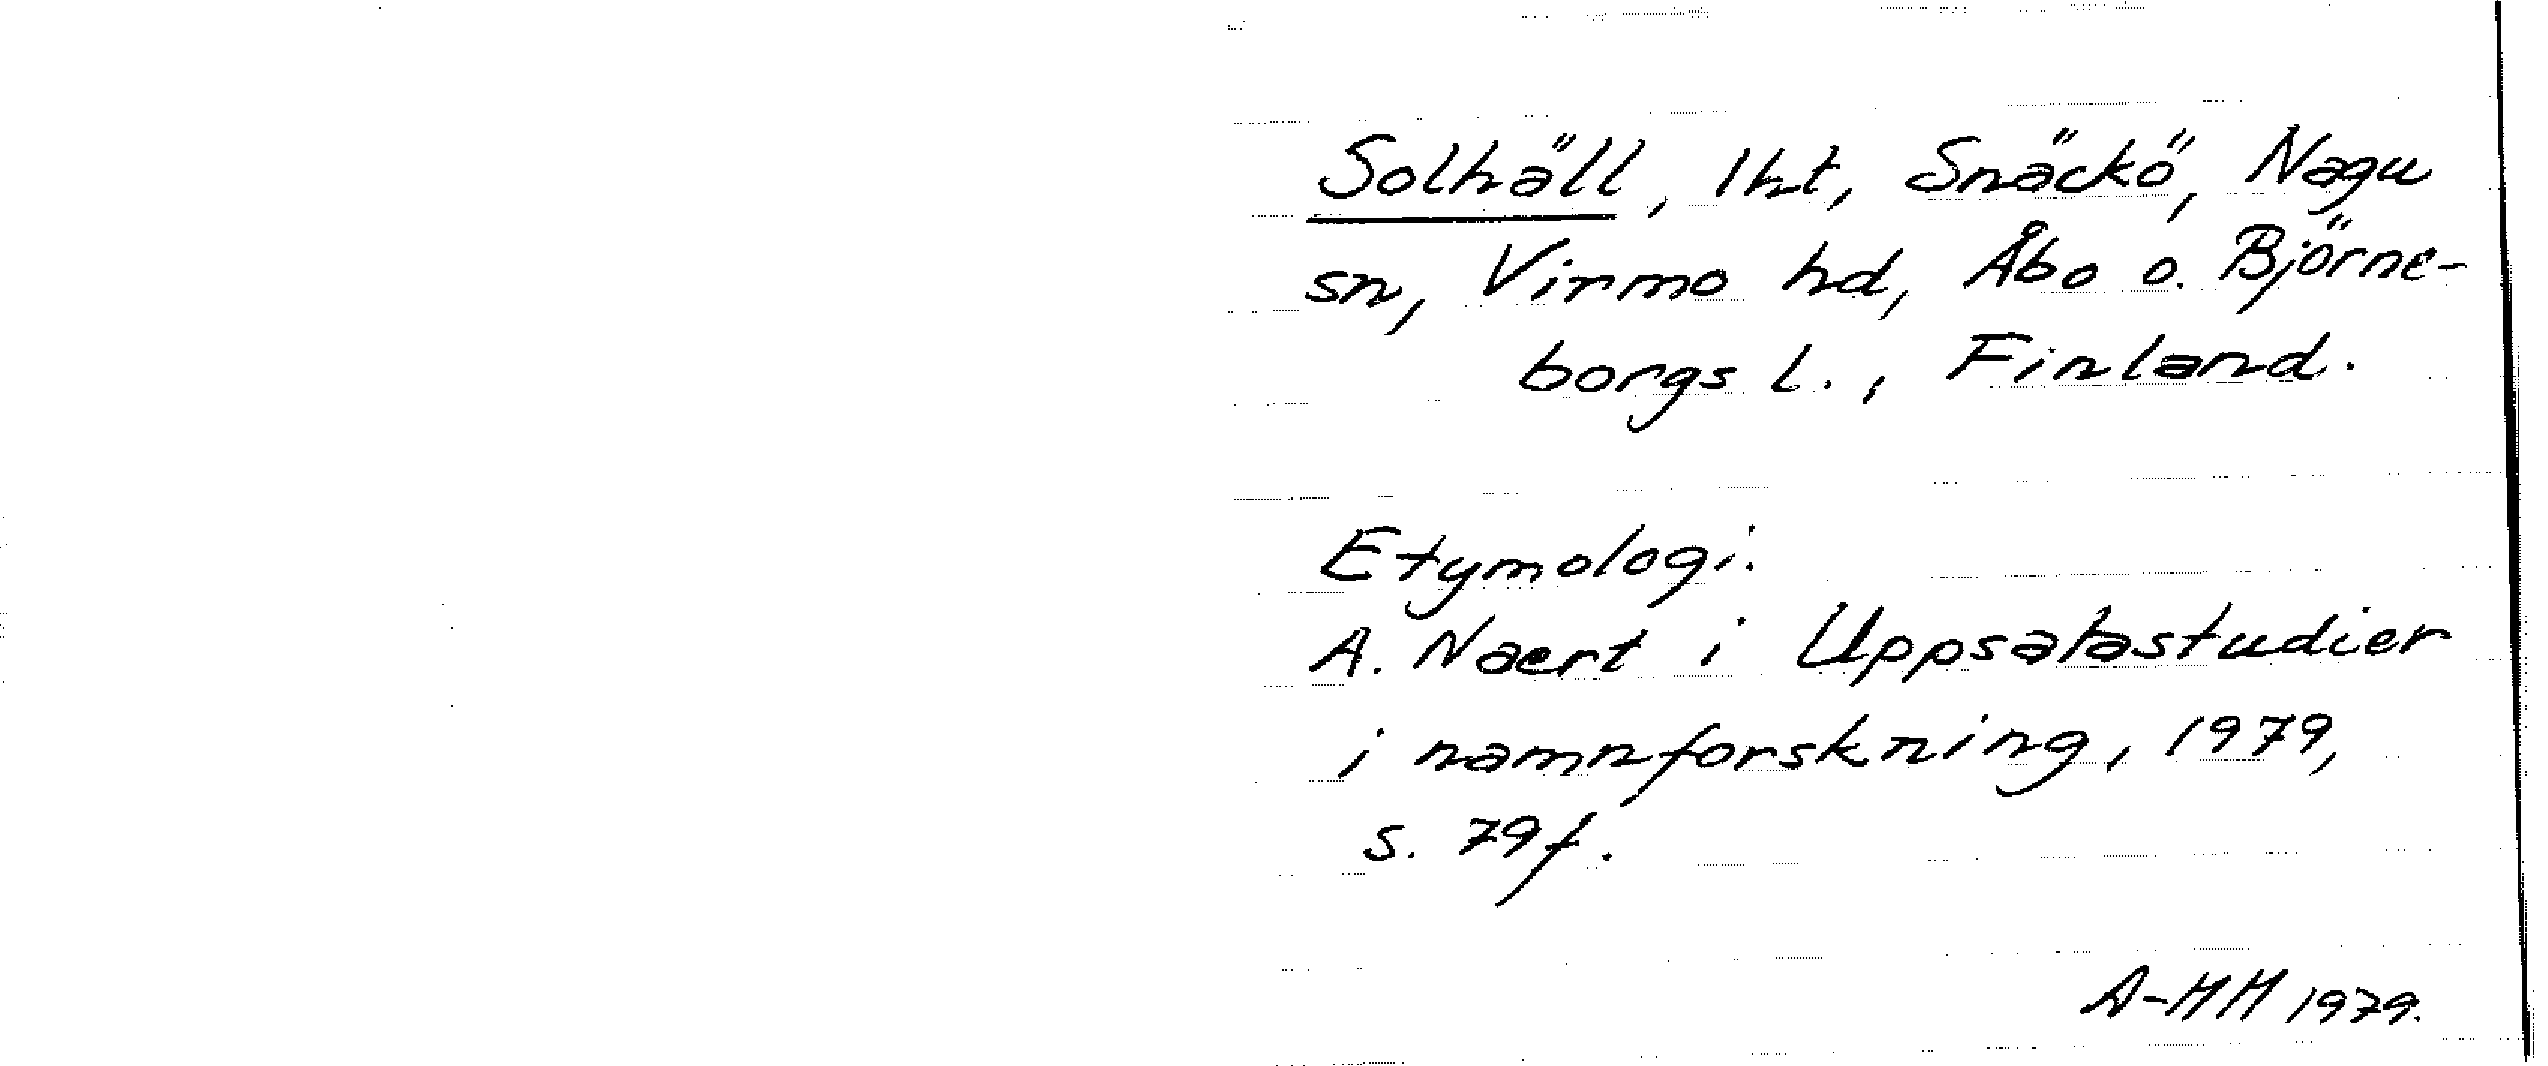 Solhäll, lht, Snäckö, Nagu
sn, Virmo hd, Åbo o. Björne-
borgs l., Finland.
Etymologi.
A. Naert i Uppsalastudier
i namnforskning, 1979,
s. 79f.
A-HH 1979.